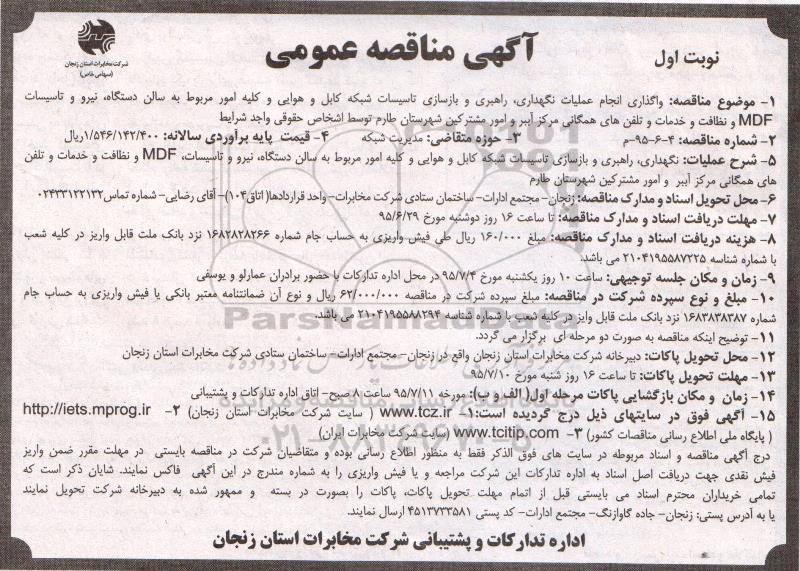 شرکت مخابرات استان زنجان
(سهامی خاص)
آگهی مناقصه عمومی
نوبت اول
۱- موضوع مناقصه: واگذاری انجام عملیات نگهداری، راهبری و بازسازی تاسیسات شبکه کابل و هوایی و کلیه امور مربوط به سالن دستگاه، نیرو و تاسیسات
MDF و نظافت و خدمات و تلفن های همگانی مرکز آببر و امور مشترکین شهرستان طارم توسط اشخاص حقوقی واجد شرایط
۲- شماره مناقصه: ۴-۶-۹۵-م ۳- حوزه متقاضی: مدیریت شبکه ۴- قیمت پایه برآوردی سالانه: ۱/۵۴۶/۱۴۲/۴۰۰ریال
۵- شرح عملیات: نگهداری، راهبری و بازسازی تاسیسات شبکه کابل و هوایی و کلیه امور مربوط به سالن دستگاه، نیرو و تاسیسات، MDF و نظافت و خدمات و تلفن
های همگانی مرکز آببر و امور مشترکین شهرستان طارم
۶- محل تحویل اسناد و مدارک مناقصه: زنجان- مجتمع ادارات- ساختمان ستادی شرکت مخابرات- واحد قراردادها( اتاق۱۰۴)- آقای رضایی- شماره تماس۰۲۴۳۳۱۲۲۱۳۲
۷- مهلت دریافت اسناد و مدارک مناقصه: تا ساعت ۱۶ روز دوشنبه مورخ ۹۵/۶/۲۹
۸- هزینه دریافت اسناد و مدارک مناقصه: مبلغ ۱۶۰/۰۰۰ ریال طی فیش واریزی به حساب جام شماره ۱۶۸۲۸۲۸۲۶۶ نزد بانک ملت قابل واریز در کلیه شعب
با شماره شناسه ۲۱۰۴۱۹۵۵۸۷۲۲۵ می باشد.
۹- زمان و مکان جلسه توجیهی: ساعت ۱۰ روز یکشنبه مورخ ۹۵/۷/۴ در محل اداره تدارکات با حضور برادران عمارلو و یوسفی
۱۰- مبلغ و نوع سپرده شرکت در مناقصه: مبلغ سپرده شرکت در مناقصه ۶۲/۰۰۰/۰۰۰ ریال و نوع آن ضمانتنامه معتبر بانکی یا فیش واریزی به حساب جام
شماره ۱۶۸۳۸۳۸۳۸۷ نزد بانک ملت قابل وایز در کلیه شعب با شماره شناسه ۲۱۰۴۱۹۵۵۸۸۲۹۴ می باشد.
۱۱- توضیح اینکه مناقصه به صورت دو مرحله ای برگزار می گردد.
۱۲- محل تحویل پاکات: دبیرخانه شرکت مخابرات استان زنجان واقع در زنجان- مجتمع ادارات- ساختمان ستادی شرکت مخابرات استان زنجان
۱۳- مهلت تحویل پاکات: تا ساعت ۱۶ روز شنبه مورخ ۹۵/۷/۱۰
۱۴- زمان و مکان بازگشایی پاکات مرحله اول( الف و ب): مورخه ۹۵/۷/۱۱ ساعت۸ صبح- اتاق اداره تدارکات و پشتیبانی
۱۵- آگهی فوق در سایتهای ذیل درج گردیده است:۱- www.tcz.ir ( سایت شرکت مخابرات استان زنجان) ۲- http://iets.mprog.ir
( پایگاه ملی اطلاع رسانی مناقصات کشور) ۳- www.tcitip.com (سایت شرکت مخابرات ایران)
درج آگهی مناقصه و اسناد مربوطه در سایت های فوق الذکر فقط به منظور اطلاع رسانی بوده و متقاضیان شرکت در مناقصه بایستی در مهلت مقرر ضمن واریز
فیش نقدی جهت دریافت اصل اسناد به اداره تدارکات این شرکت مراجعه و یا فیش واریزی را به شماره مندرج در این آگهی فاکس نمایند. شایان ذکر است که
تمامی خریداران محترم اسناد می بایستی قبل از اتمام مهلت تحویل پاکات، پاکات را بصورت در بسته و ممهور شده به دبیرخانه شرکت تحویل نمایند
یا به آدرس پستی: زنجان- جاده گاوازنگ- مجتمع ادارات- کد پستی ۴۵۱۳۷۳۳۵۸۱ ارسال نمایند.
اداره تدارکات و پشتیبانی شرکت مخابرات استان زنجان
ParsNamadData